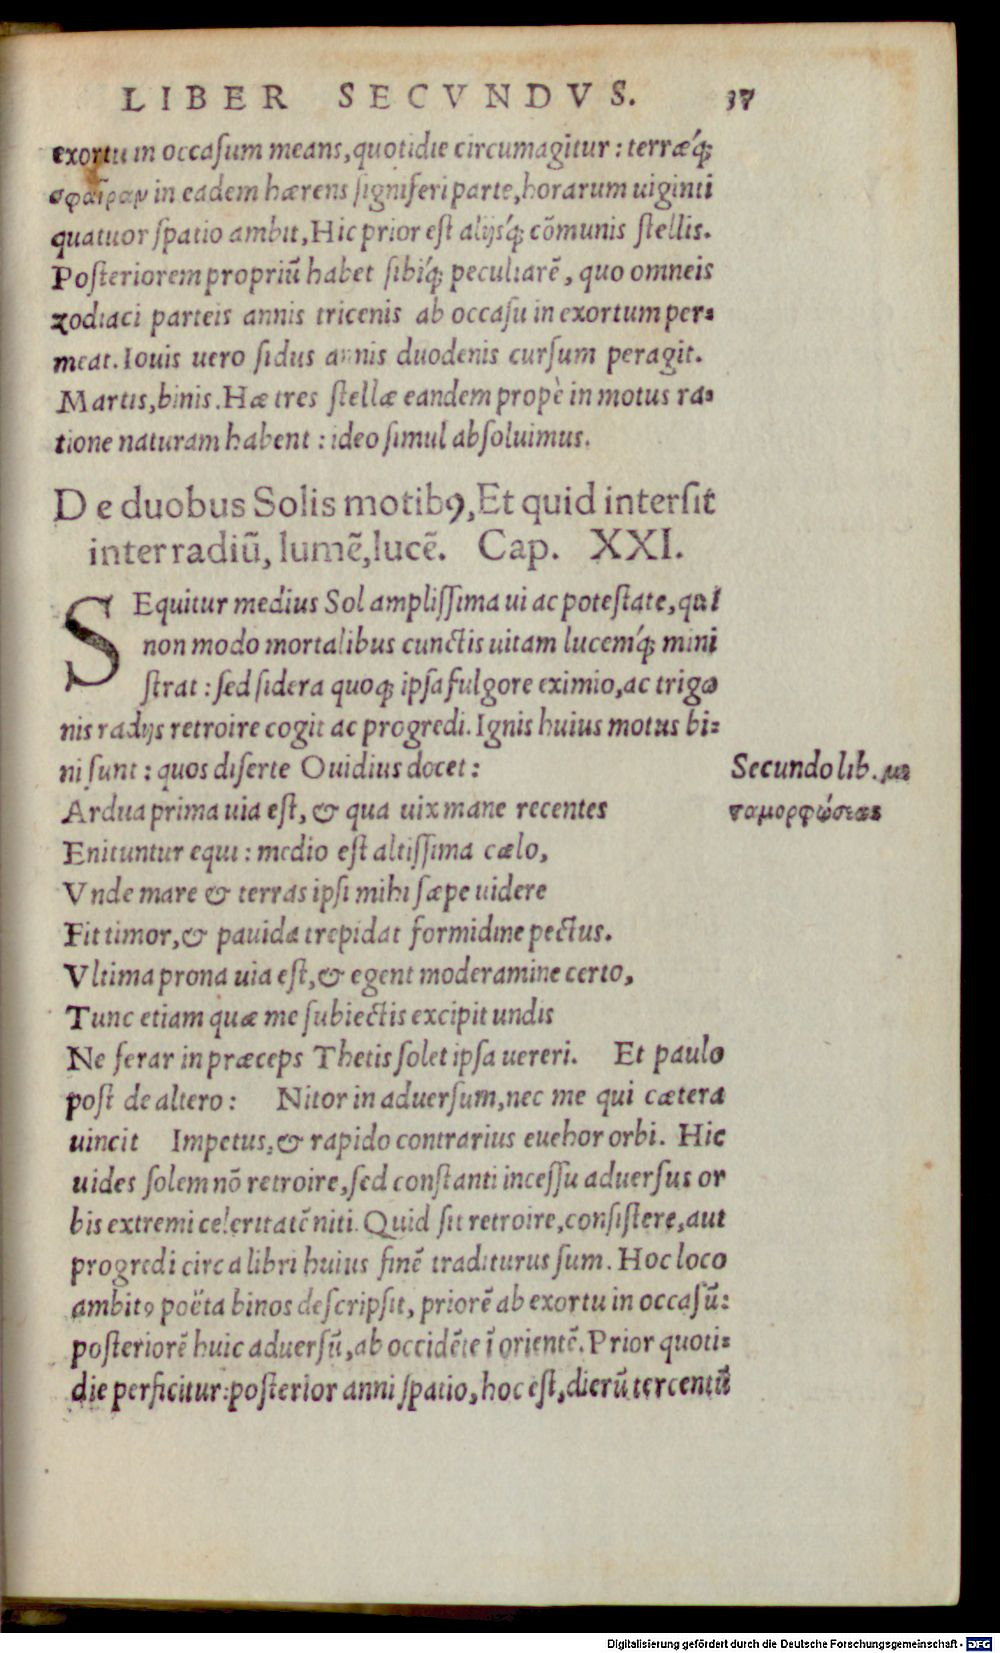 LIBER SECVNDVS. 37
exortu in occaſum means, quotidie circumagitur: terræq́;
σφαῖραν in eadem hærens ſigniferi parte, horarum uiginti
quatuor ſpatio ambit, Hic prior eſt alijsq́; cõmunis ſtellis.
Poſteriorem propriũ habet ſibiq́; peculiarẽ, quo omneis
zodiaci parteis annis tricenis ab occaſu in exortum per=
meat. Iouis uero ſidus annis duodenis curſum peragit.
Martis, binis. Hæ tres ſtellæ eandem propè in motus ra=
tione naturam habent: ideo ſimul abſoluimus.
De duobus Solis motibꝰ, Et quid interſit
inter radiũ, lumẽ, lucẽ. Cap. XXI.
SEquitur medius Sol ampliſſima ui ac poteſtate, qui
non modo mortalibus cunctis uitam lucemq́; mini
ſtrat: ſed ſidera quoq; ipſa fulgore eximio, ac trigo
nis radijs retroire cogit ac progredi. Ignis huius motus bi=
ni ſunt: quos diſerte Ouidius docet:
Secundo lib. με
ταμορφώσεως
Ardua prima uia eſt, & qua uix mane recentes
Enituntur equi: medio eſt altiſſima cælo,
Vnde mare & terras ipſi mihi ſæpe uidere
Fit timor, & pauida trepidat formidine pectus.
Vltima prona uia eſt, & egent moderamine certo,
Tunc etiam quæ me ſubiectis excipit undis
Ne ferar in præceps Thetis ſolet ipſa uereri. Et paulo
poſt de altero: Nitor in aduerſum, nec me qui cætera
uincit Impetus, & rapido contrarius euehor orbi. Hic
uides ſolem nõ retroire, ſed conſtanti inceſſu aduerſus or
bis extremi celeritatẽ niti. Quid ſit retroire, conſiſtere, aut
progredi circa libri huius finẽ traditurus ſum. Hoc loco
ambitꝰ poëta binos deſcripſit, priorẽ ab exortu in occaſũ:
poſteriorẽ huic aduerſũ, ab occidẽte ĩ orientẽ. Prior quoti=
die perficitur: poſterior anni ſpatio, hoc eſt, dierũ tercentũ
Digitalisierung gefördert durch die Deutsche Forschungsgemeinschaft - DFG